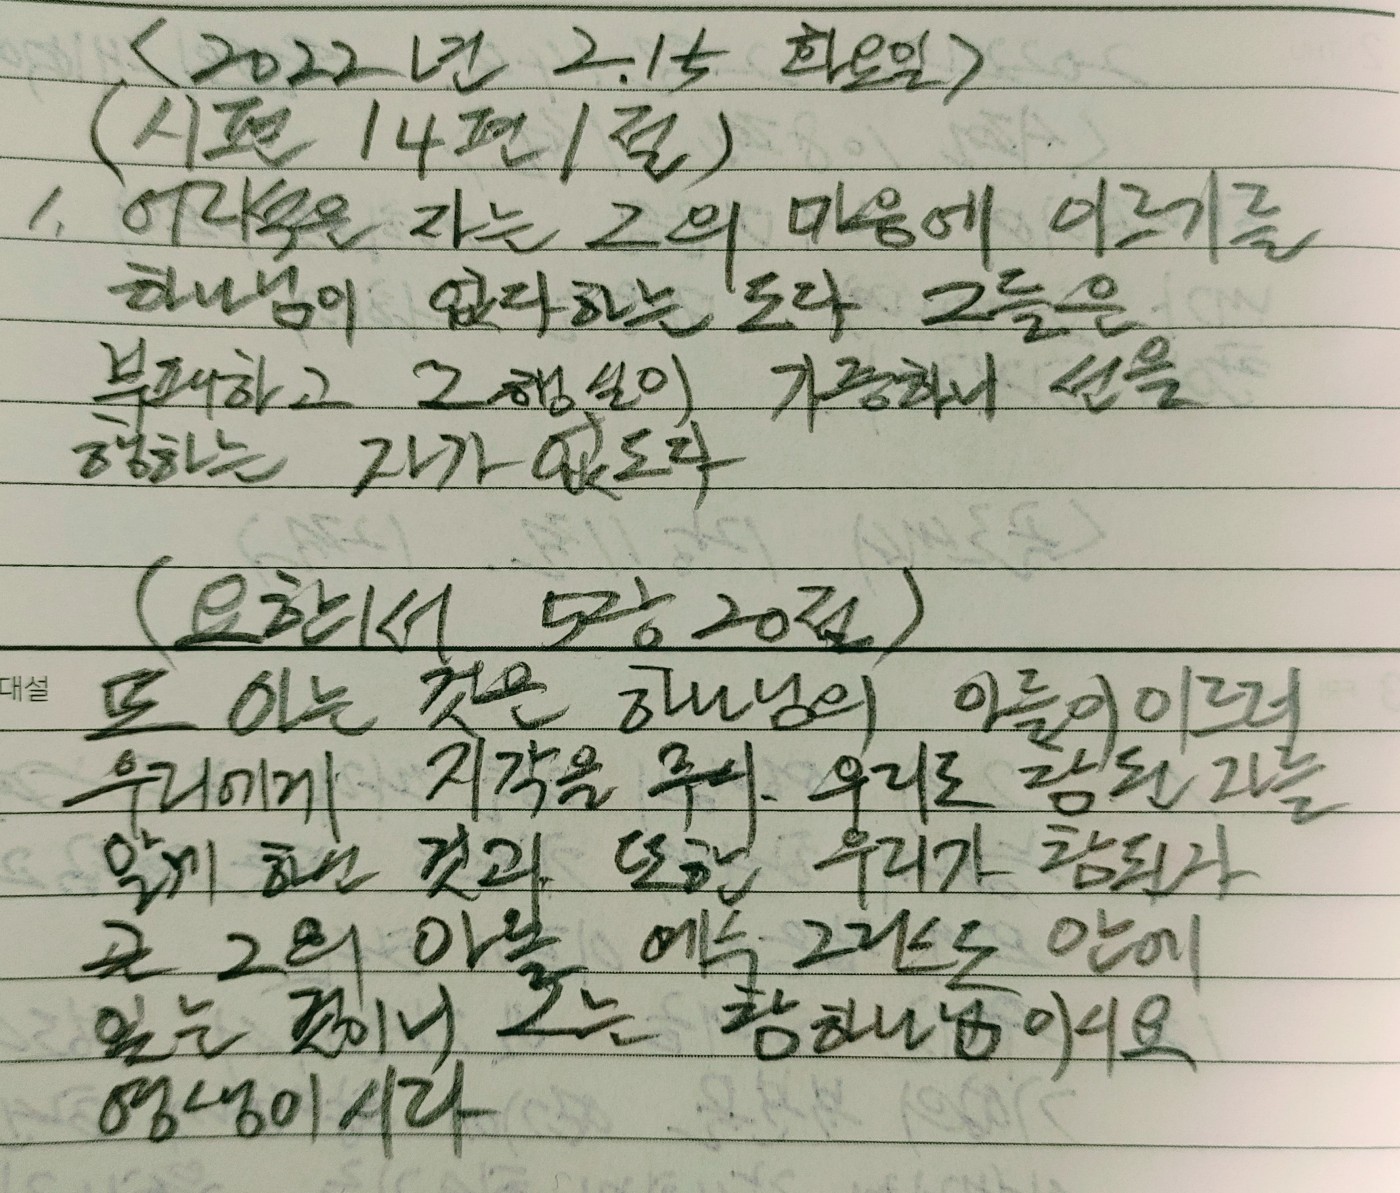 <2022년 2.15 화요일>
(시편 14편 1절)
1. 어리석은 자는 그의 마음에 이르기를
하나님이 없다하는 도다 그들은
부패하고 그 행실이 가증하니 선을
행하는 자가 없도다
(요한1서 5장 20절)
대설 또 아는 것은 하나님의 아들이 이르러
우리에게 지각을 주사 우리로 참된 자를
알게 하신 것과 또한 우리가 참된 자
곧 그의 아들 예수 그리스도 안에
있는 것이니 그는 참 하나님이시요
영생이시라